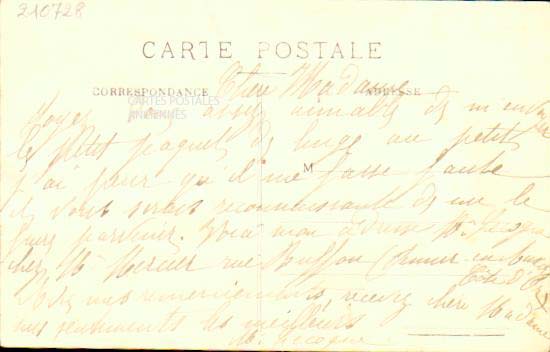 210728
CARTE POSTALE
CORRESPONDANCE
ADRESSE
CARTES POSTALES
ANCIENNES
M
Chère Madame
assez aimable de m'envoyer
le petit paquet de linge au petit
j'ai peur qu'il me fasse faute
je vous serais reconnaissante de me le
faire parvenir. Voici mon adresse M.
chez M. Mercier rue Buffon Semur en Auxois
Côte d'Or
mes remerciements, recevez chère Madame
mes sentiments les meilleurs